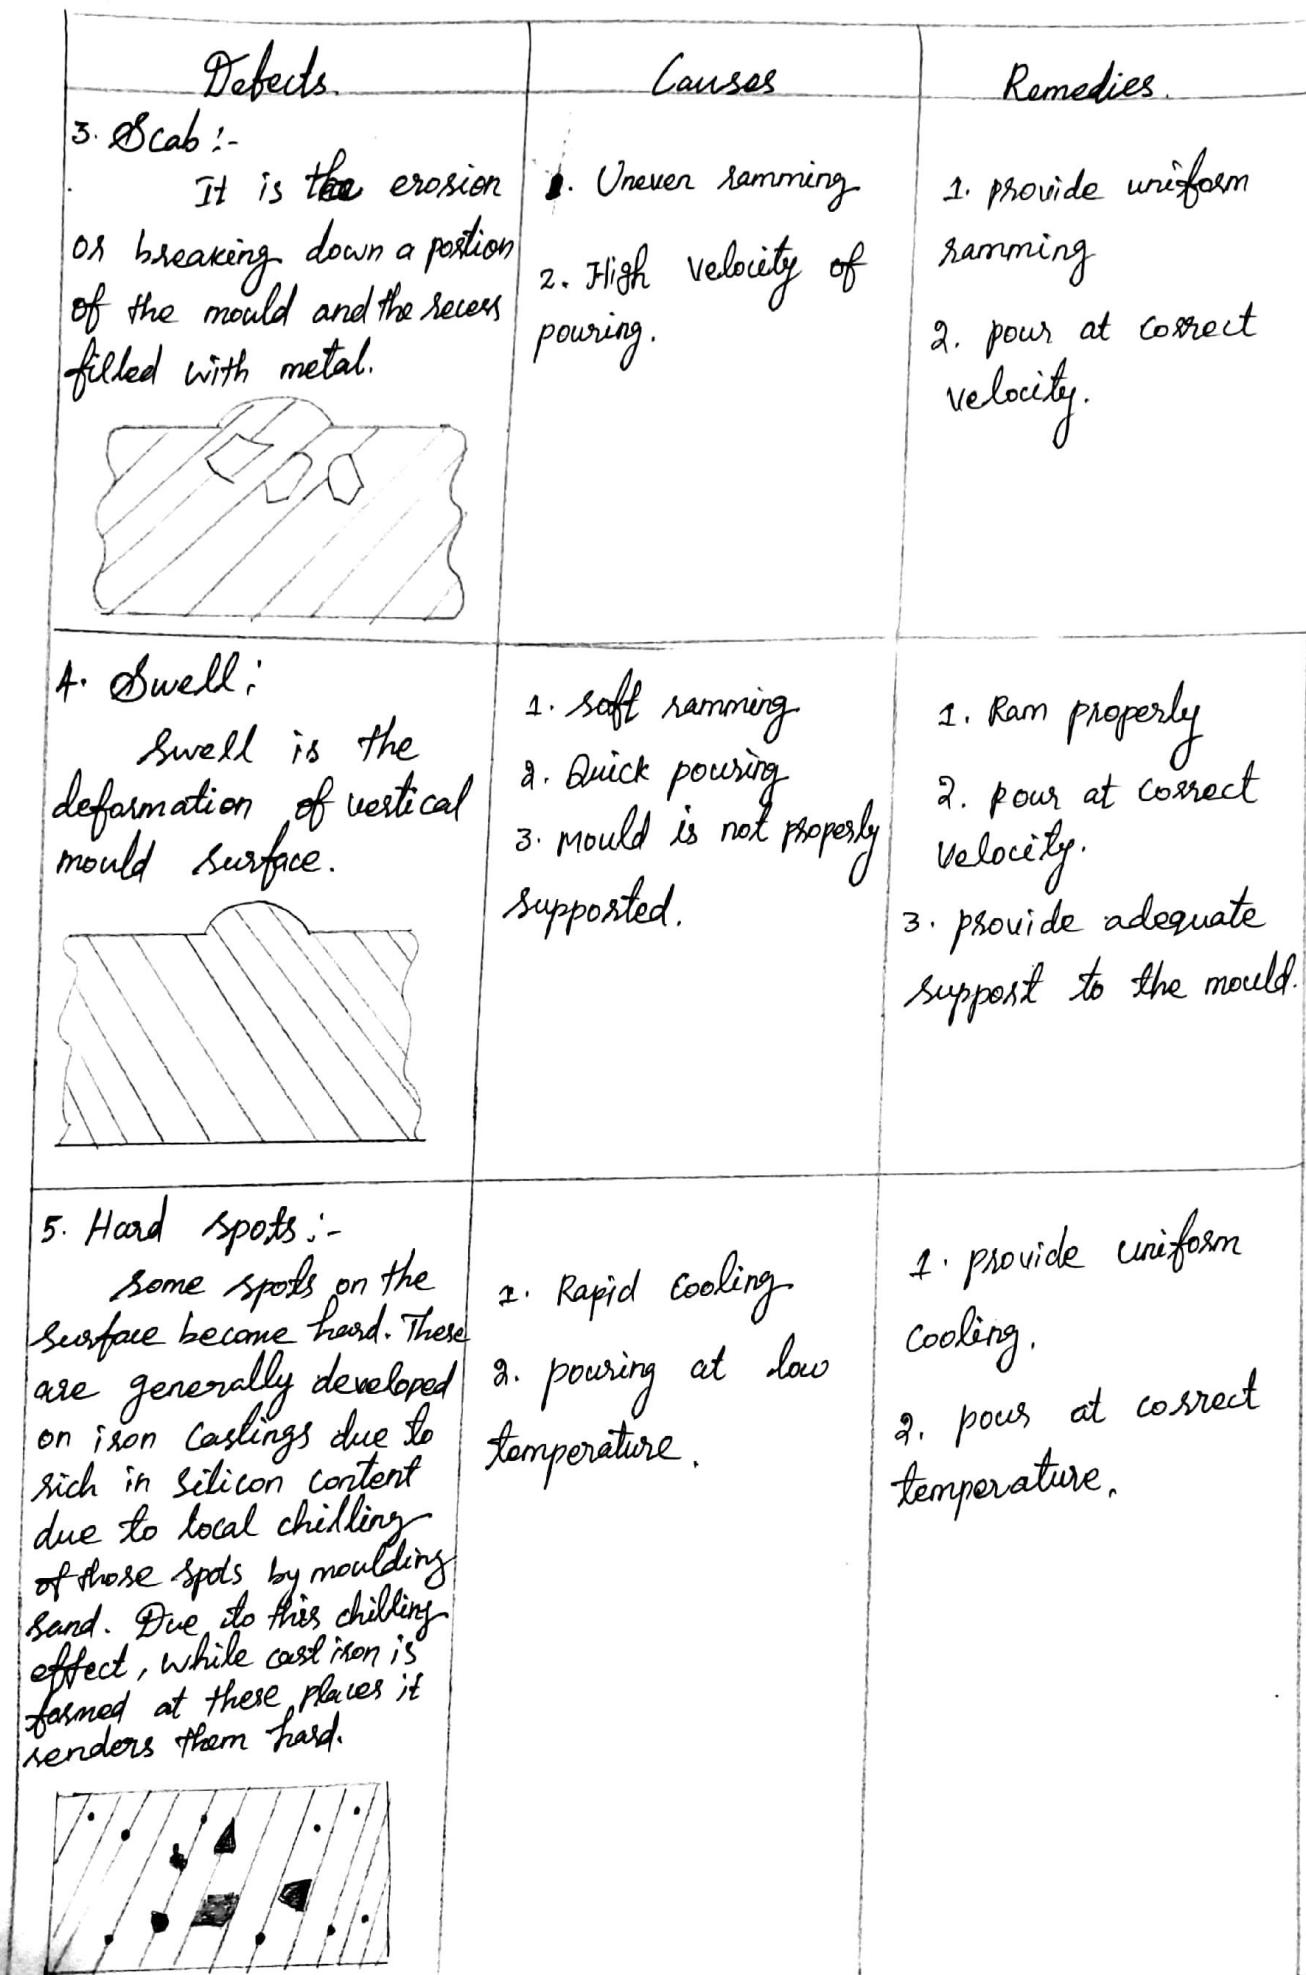 Defects.
Causes
Remedies.
3. Scab :-
It is the erosion
or breaking down a portion
of the mould and the recess
filled with metal.
1. Uneven ramming
2. High velocity of
pouring.
1. provide uniform
ramming
2. pour at correct
velocity.
4. Swell :
Swell is the
deformation of vertical
mould surface.
1. soft ramming
2. Quick pouring
3. Mould is not properly
supported.
1. Ram properly
2. pour at correct
velocity.
3. provide adequate
support to the mould.
5. Hard spots :-
Some spots on the
surface become hard. These
are generally developed
on iron castings due to
rich in silicon content
due to local chilling
of those spots by moulding
sand. Due to this chilling
effect, while cast iron is
formed at these places it
renders them hard.
1. Rapid cooling
2. pouring at low
temperature.
1. provide uniform
cooling.
2. pour at correct
temperature.